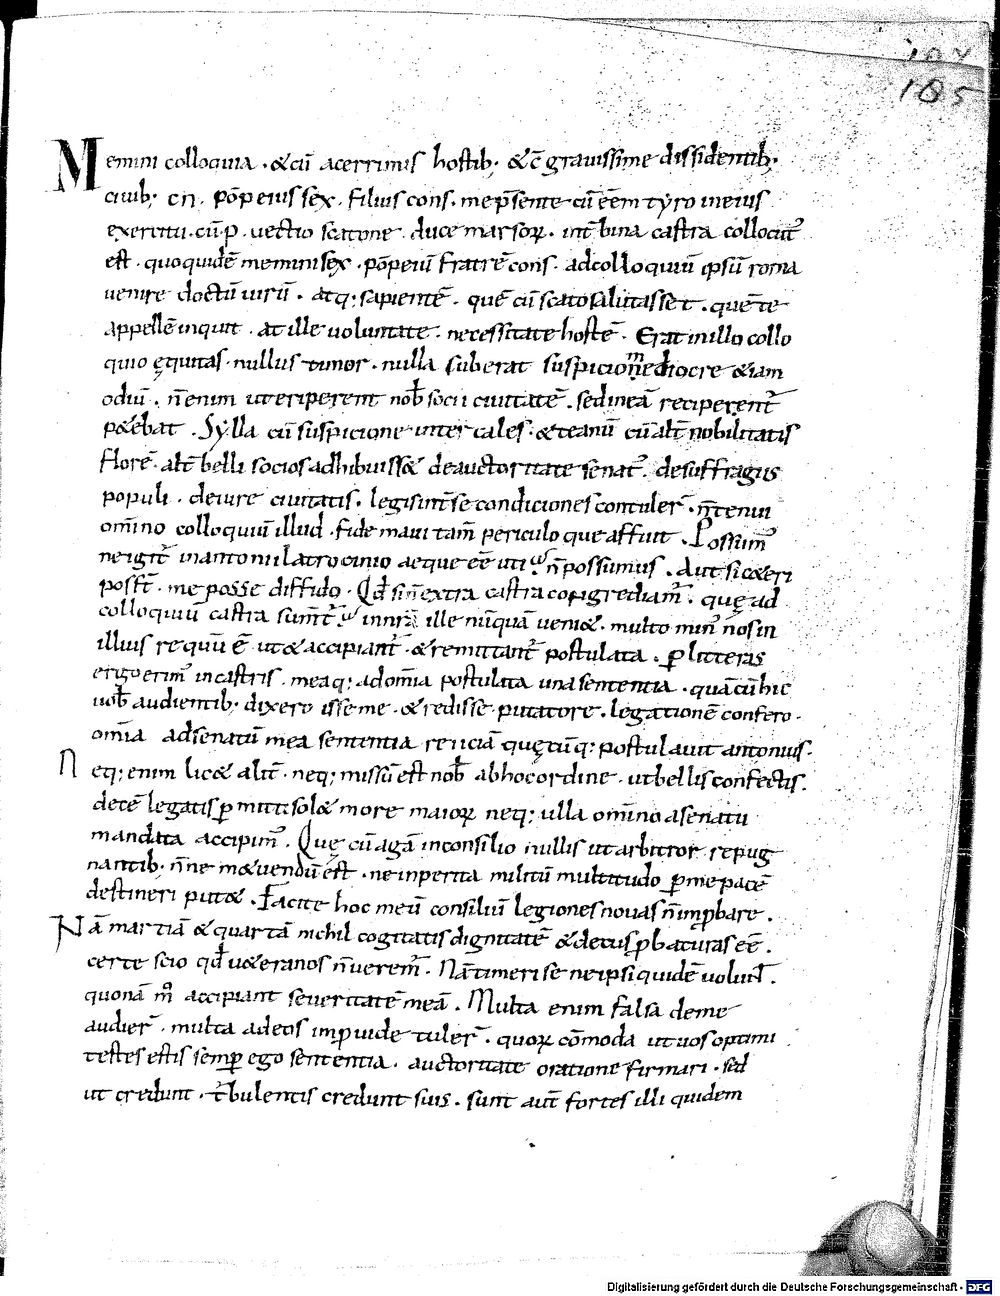 105
Memini colloquia · &cū acerrimis hostib; &c̄ grauissime dissidentib;
ciuib; cn · pōpeius sex · filius cons · me p̄sente cū eēm tyro in eius
exercitu · cū · p · uectio scatone · duce marsoꝝ · int̄ bina castra collocut᷒
est · quo quidē memini sex · pōpeiū fratrē cons · ad colloquiū ipsū roma
uenire doctū uirū · atq; sapientē · quē cū scato salutasset · quē te
appellē inquit · at ille uoluntate · necessitate hostē · Erat in illo collo
quio ęquitas · nullus timor · nulla suberat suspicio mediocre &iam
odiū · n̄ enim ut eriperent nob̄ socii ciuitatē · sed in eā reciperent᷒
p&ebat · Sylla cū suspicione inter cales · & teanū cū alt̄ nobilitatis
florē · alt̄ belli socios adhibuiss& de auctoritate senat᷒ · de suffragiis
populi · de iure ciuitatis · leges int̄ se condiciones contuler̄ · n̄ tenui
om̄ino colloquiū illud · fide maui tam̄ periculo que affuit · Possum᷒
ne igit᷒ in antonii latrocinio aeque eē uti n̄ possumus · Aut si c&eri
post̄ · me posse diffido · Qd̄ si n̄ extra castra congrediam᷒ · quę ad
colloquiū castra sumt᷒ in nr̄a ille nūquā ueni& · multo min᷒ nos in
illius requū ē ut & accipiant᷒ · & remittant᷒ postulata · ꝑ litteras
ergo erim᷒ in castris · meaq; ad om̄ia postulata una sententia · quā cū hic
uob̄ audientib; dixero isse me · & redisse putatore · legationē confero ·
om̄ia ad senatū mea sententia reiciā quęcūq; postulauit antonius ·
Neq; enim lic& alit̄ · neq; missū est nob̄ ab hoc ordine · ut bellis confectis ·
decē legatis ꝑmitti sol& more maioꝝ neq; ulla om̄ino a senatu
mandata accipim᷒ · Quę cū agā in consilio nullis ut arbitror repug
nantib; n̄ne m&uendū est · ne inperita militū multitudo ꝑ me pacē
destineri put& · Facite hoc meū consiliū legiones nouas n̄ inprobare ·
Nā martiā & quartā nichil cogitatis dignitatē & decus ꝓbaturas eē ·
certe scio qd̄ u&eranos n̄ uerem᷒ · Nā timeri se ne ipsi quidē uolunt̄ ·
quonā m̊ accipiant seueritatē meā · Multa enim falsa de me
audier̄ · multa ad eos imꝓuide tuler̄ · quoꝝ cōmoda ut uos optimi
testes estis semꝑ ego sententia · auctoritate oratione firmari · sed
ut credunt · t᷒bulentis credunt suis · sunt aut̄ fortes illi quidem
Digitalisierung gefördert durch die Deutsche Forschungsgemeinschaft - DFG